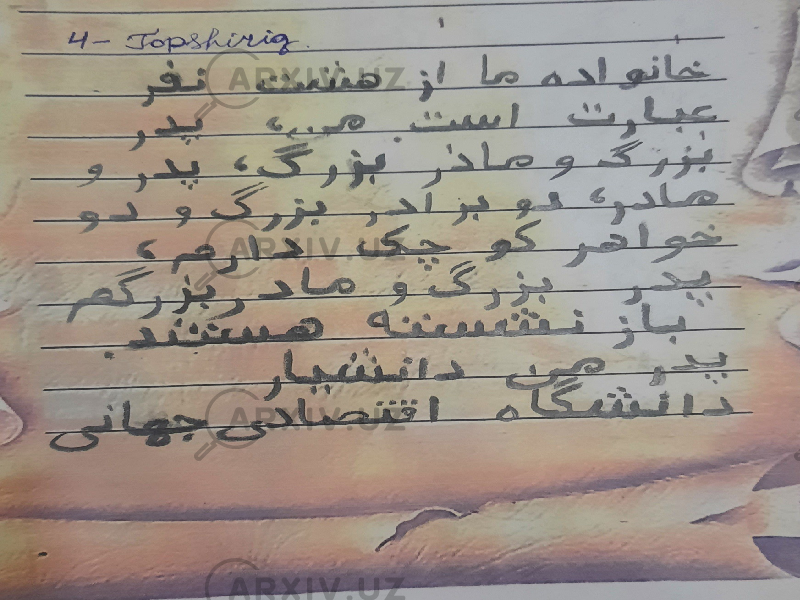 4- Topshiriq.
خانواده ما از هشت نفر
عبارت است. من، پدر
بزرگ و مادر بزرگ، پدر و
مادر، دو برادر بزرگ و دو
خواهر کو چک دارم،
پدر بزرگ و مادربزرگم
باز نشسته هستند.
پدر من دانشیار
دانشگاه اقتصادی جهانی
ARXIV.UZ
ARXIV.UZ
ARXIV.UZ
ARXIV.UZ